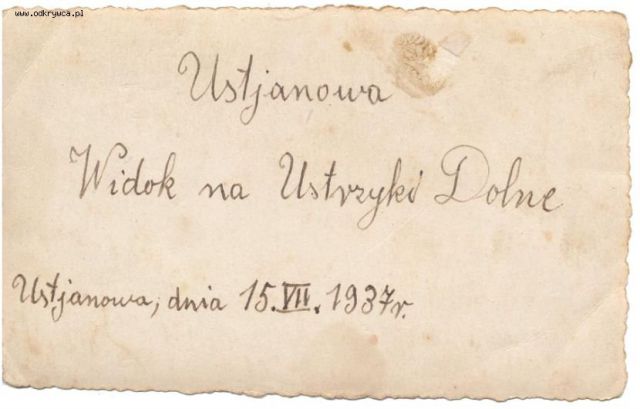 www.odkrywca.pl
Ustjanowa
Widok na Ustrzyki Dolne
Ustjanowa, dnia 15.VII.1937r.